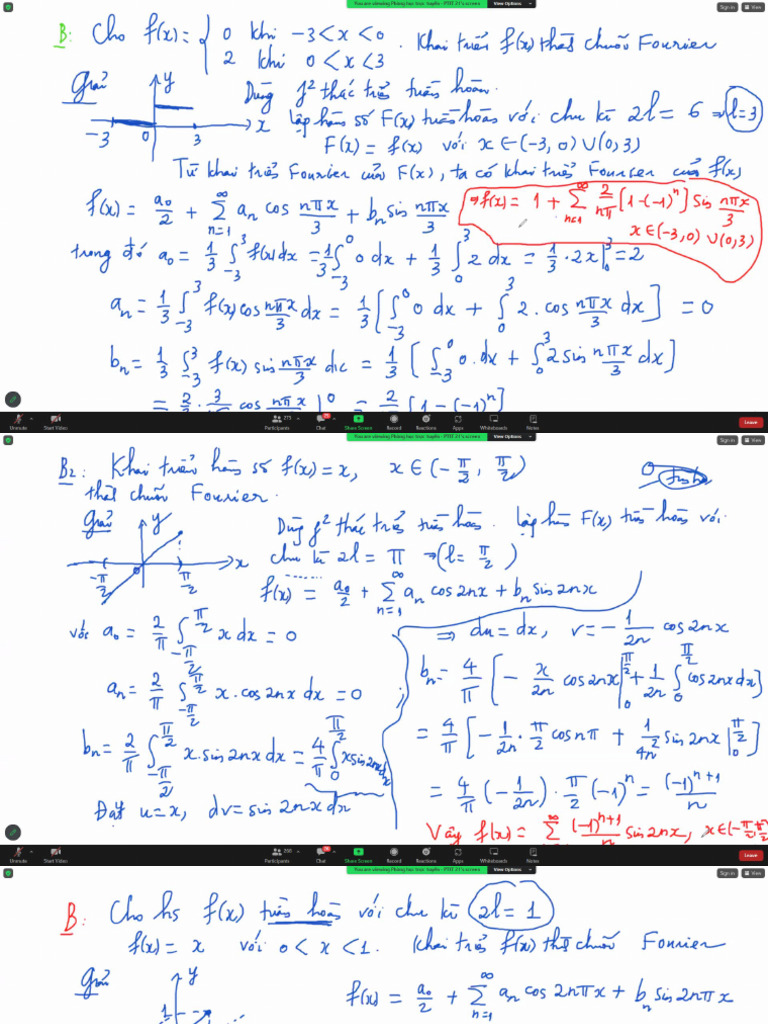 You are viewing Phòng học trực tuyến - PTIT 21's screen View Options
Sign in View
B: Cho f(x) = { 0 khi -3 < x < 0
2 khi 0 < x < 3 . Khai triển f(x) thành chuỗi Fourier
Giải
y
x
-3 0 3
Dùng p² thác triển tuần hoàn.
Lập hàm số F(x) tuần hoàn với chu kì 2l = 6 ⇒ l = 3
F(x) = f(x) với x ∈ (-3, 0) ∪ (0, 3)
Từ khai triển Fourier của F(x), ta có khai triển Fourier của f(x)
f(x) = a₀/2 + ∑_{n=1}^{∞} aₙ cos nπx/3 + bₙ sin nπx/3
⇒ f(x) = 1 + ∑_{n=1}^{∞} 2/nπ [1-(-1)ⁿ] sin nπx/3
x ∈ (-3, 0) ∪ (0, 3)
trong đó a₀ = 1/3 ∫_{-3}^{3} f(x) dx = 1/3 ∫_{-3}^{0} 0 dx + 1/3 ∫_{0}^{3} 2 dx = 1/3 · 2x |_{0}^{3} = 2
aₙ = 1/3 ∫_{-3}^{3} f(x) cos nπx/3 dx = 1/3 [ ∫_{-3}^{0} 0 dx + ∫_{0}^{3} 2 . cos nπx/3 dx ] = 0
bₙ = 1/3 ∫_{-3}^{3} f(x) sin nπx/3 dx = 1/3 [ ∫_{-3}^{0} 0 . dx + ∫_{0}^{3} 2 sin nπx/3 dx ]
Unmute Start Video Participants 273 Chat Share Screen Record Reactions Apps Whiteboards Notes Leave
You are viewing Phòng học trực tuyến - PTIT 21's screen View Options
Sign in View
B2: Khai triển hàm số f(x) = x, x ∈ (-π/2, π/2)
thành chuỗi Fourier.
Giải
y
x
-π/2 0 π/2
Dùng p² thác triển tuần hoàn. Lập hàm F(x) tuần hoàn với
chu kì 2l = π → (l = π/2)
f(x) = a₀/2 + ∑_{n=1}^{∞} aₙ cos 2nx + bₙ sin 2nx
với a₀ = 2/π ∫_{-π/2}^{π/2} x dx = 0
aₙ = 2/π ∫_{-π/2}^{π/2} x . cos 2nx dx = 0
bₙ = 2/π ∫_{-π/2}^{π/2} x . sin 2nx dx = 4/π ∫_{0}^{π/2} x sin 2nx dx
Đặt u = x, dv = sin 2nx dx
⇒ du = dx, v = - 1/2n cos 2nx
bₙ = 4/π [ - x/2n cos 2nx |_{0}^{π/2} + 1/2n ∫_{0}^{π/2} cos 2nx dx ]
= 4/π [ - 1/2n . π/2 cos nπ + 1/4n² sin 2nx |_{0}^{π/2} ]
= 4/π (-1/2n) . π/2 (-1)ⁿ = (-1)ⁿ⁺¹/n
Vậy f(x) = ∑^{∞} (-1)ⁿ⁺¹/n sin 2nx, x ∈ (-π/2, π/2)
Unmute Start Video Participants Chat Share Screen Record Reactions Apps Whiteboards Notes Leave
You are viewing Phòng học trực tuyến - PTIT 21's screen View Options
Sign in View
B: Cho hs f(x) tuần hoàn với chu kì 2l = 1
f(x) = x với 0 < x < 1. Khai triển f(x) thành chuỗi Fourier
Giải
y
1
f(x) = a₀/2 + ∑_{n=1}^{∞} aₙ cos 2nπx + bₙ sin 2nπx